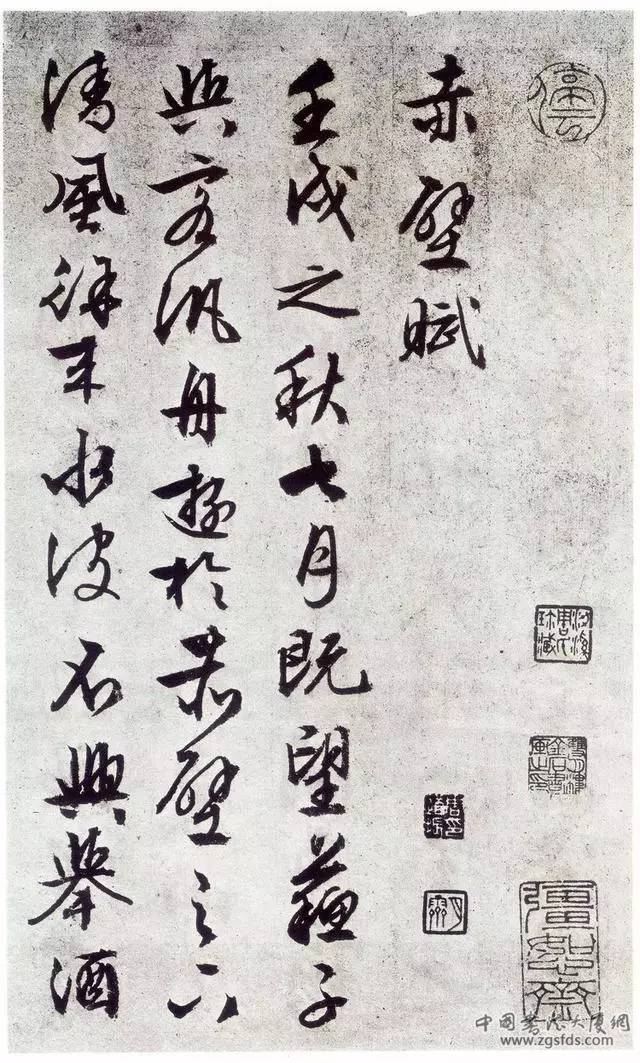 赤壁賦
壬戌之秋七月既望蘇子
與客汎舟遊於赤壁之下
清風徐來水波不興舉酒
中國書法大廈網
www.zgsfds.com